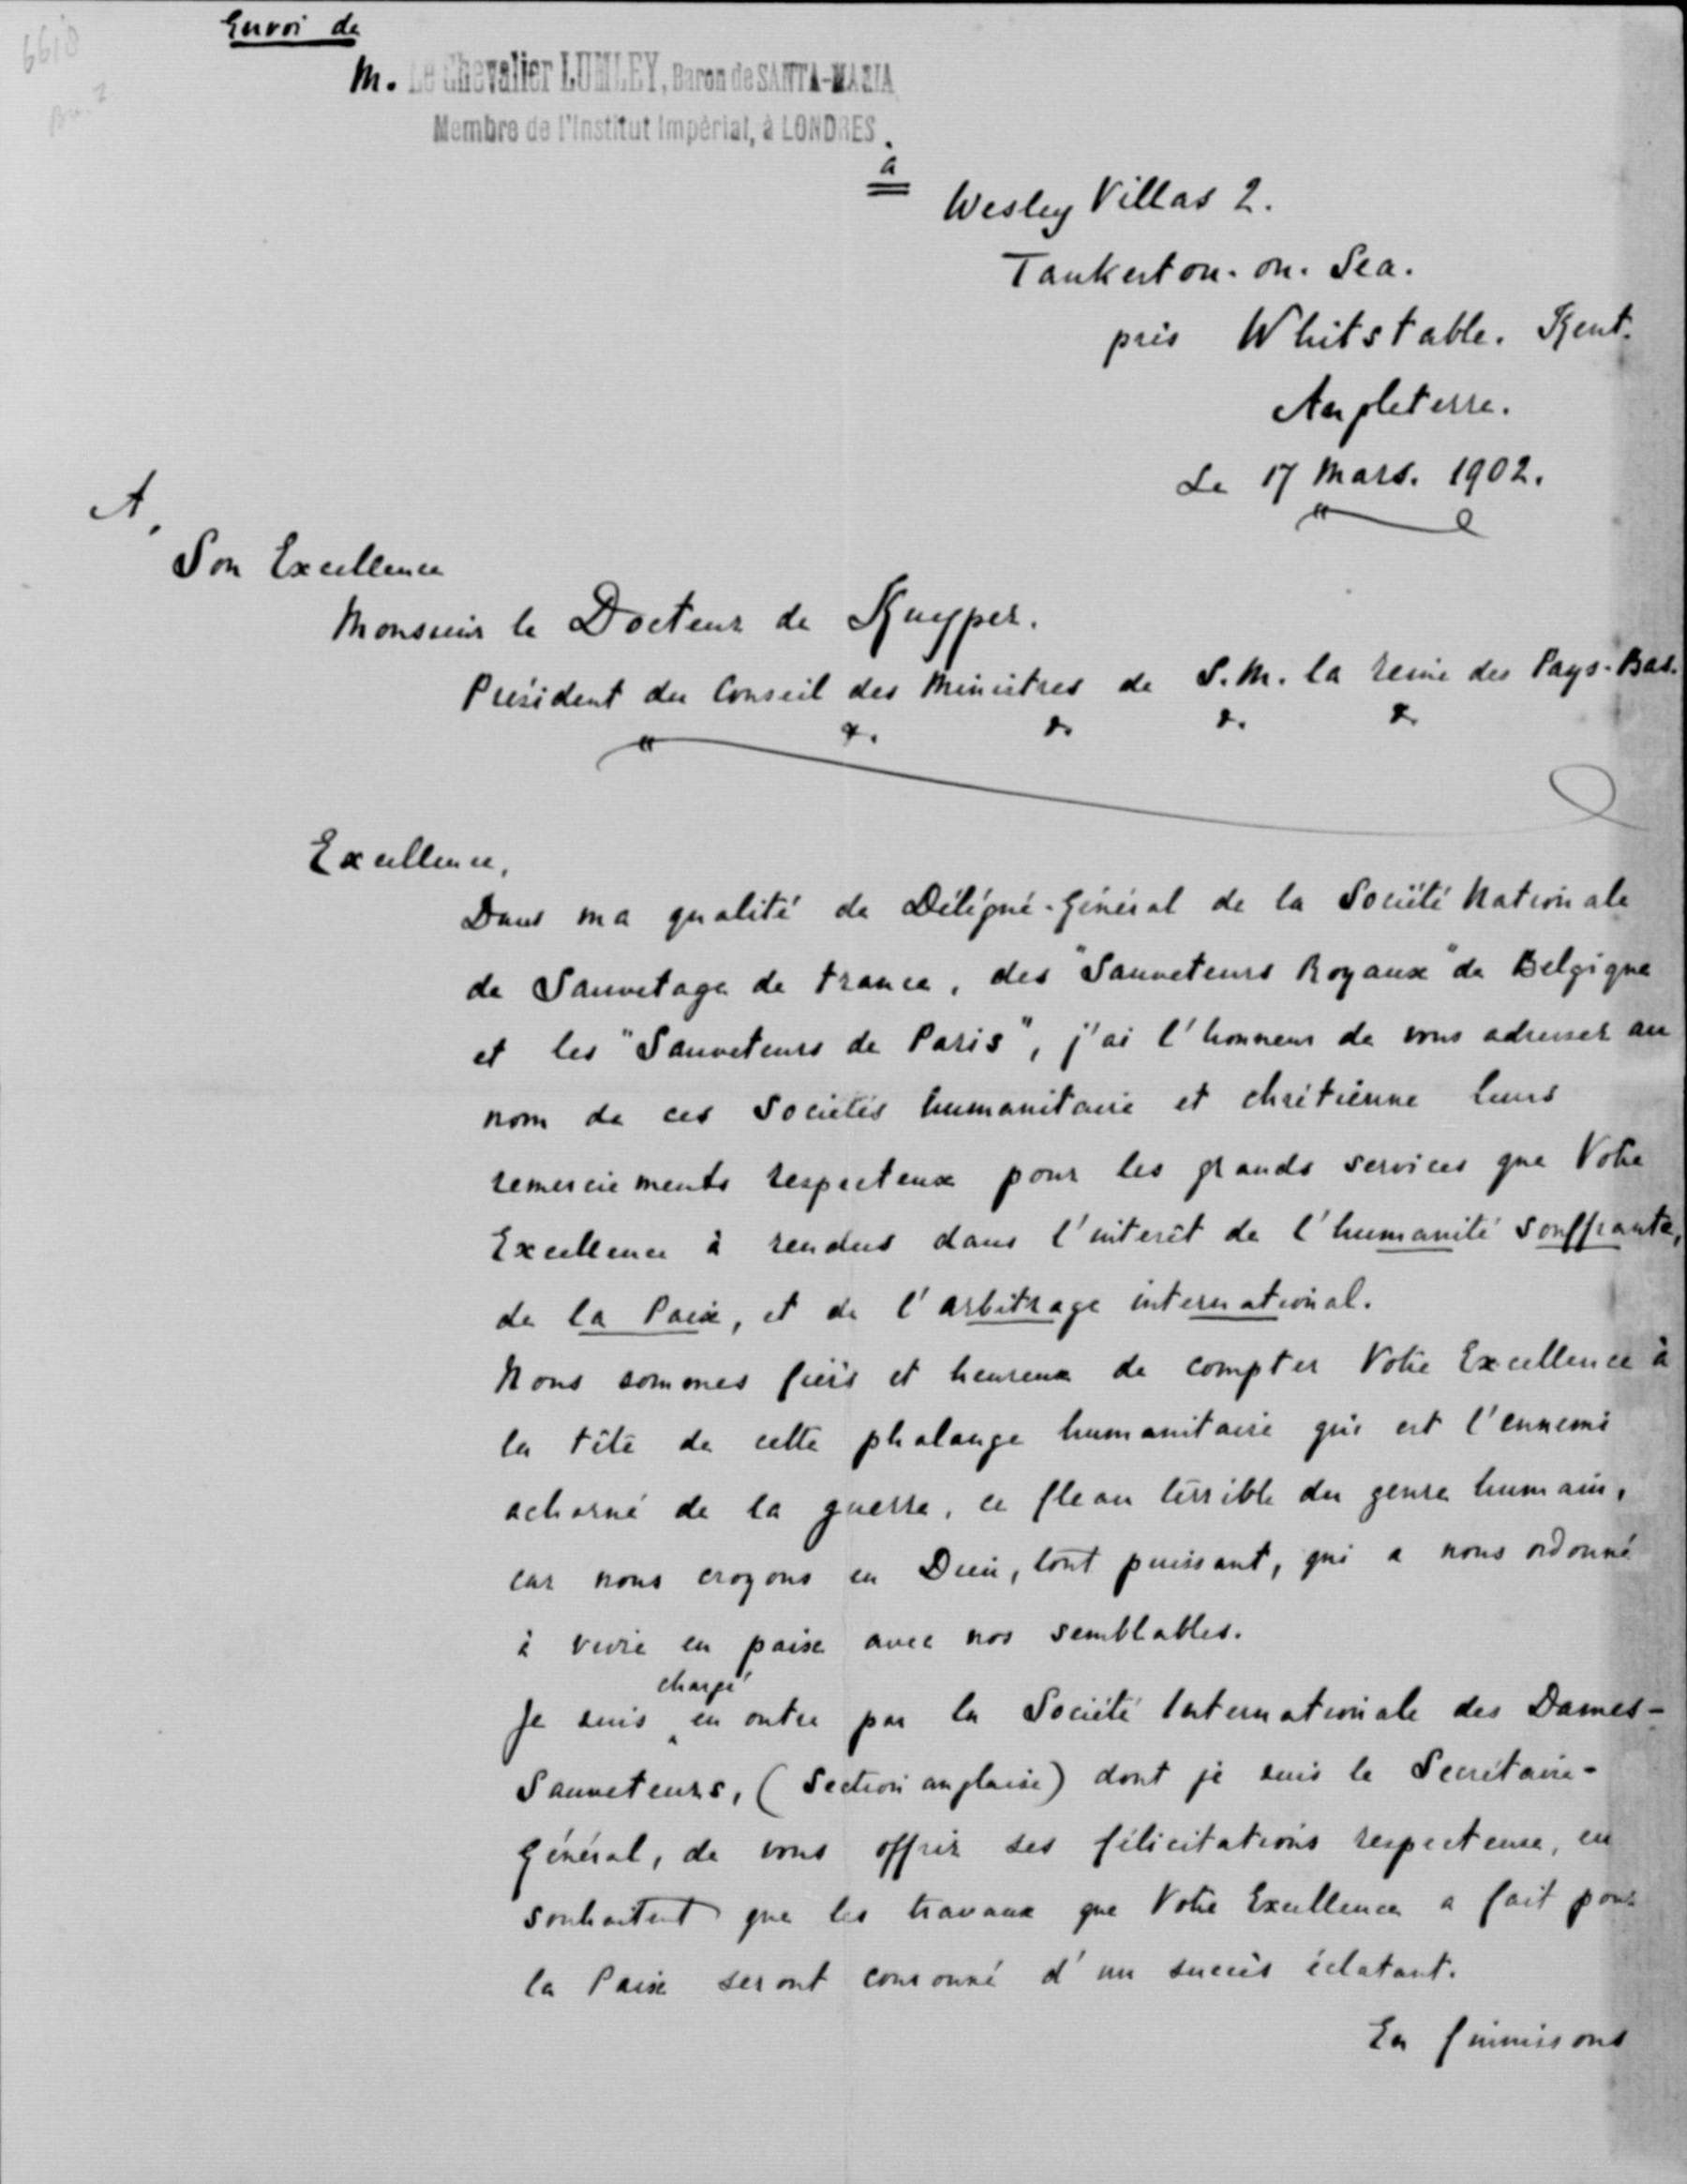 6618
Bu. 2
Envoi de
M. Le Chevalier LUMLEY, Baron de SANTA-MARIA
Membre de l'Institut Impérial, à LONDRES.
à
Wesley Villas 2.
Tankerton. on. Sea.
près Whitstable. Kent.
Angleterre.
Le 17 Mars. 1902.
A,
Son Excellence
Monsieur le Docteur de Kuyper.
Président du Conseil des Ministres de S. M. la reine des Pays-Bas.
Excellence,
Dans ma qualité de Délégué-Général de la Société Nationale
de Sauvetage de France, des "Sauveteurs Royaux" de Belgique
et les "Sauveteurs de Paris", j'ai l'honneur de vous adresser au
nom de ces Societés humanitaire et chrétienne leurs
remerciements respecteux pour les grands services que Votre
Excellence à rendus dans l'interêt de l'humanité souffrante,
de la Paix, et de l'arbitrage international.
Nous sommes fiers et heureux de compter Votre Excellence à
la tête de cette phalange humanitaire qui est l'ennemi
acharné de la guerre, ce fleau terrible du genre humain,
car nous croyons en Dieu, tout puissant, qui a nous ordonné
à vivre en paix avec nos semblables.
Je suis chargé en outre par la Société Internationale des Dames-
Sauveteurs, (Section anglaise) dont je suis le Secrétaire-
Général, de vous offrir ses félicitations respecteuse, en
souhaitent que les travaux que Votre Excellence a fait pour
la Paix seront couronné d'un succès éclatant.
En finnissons